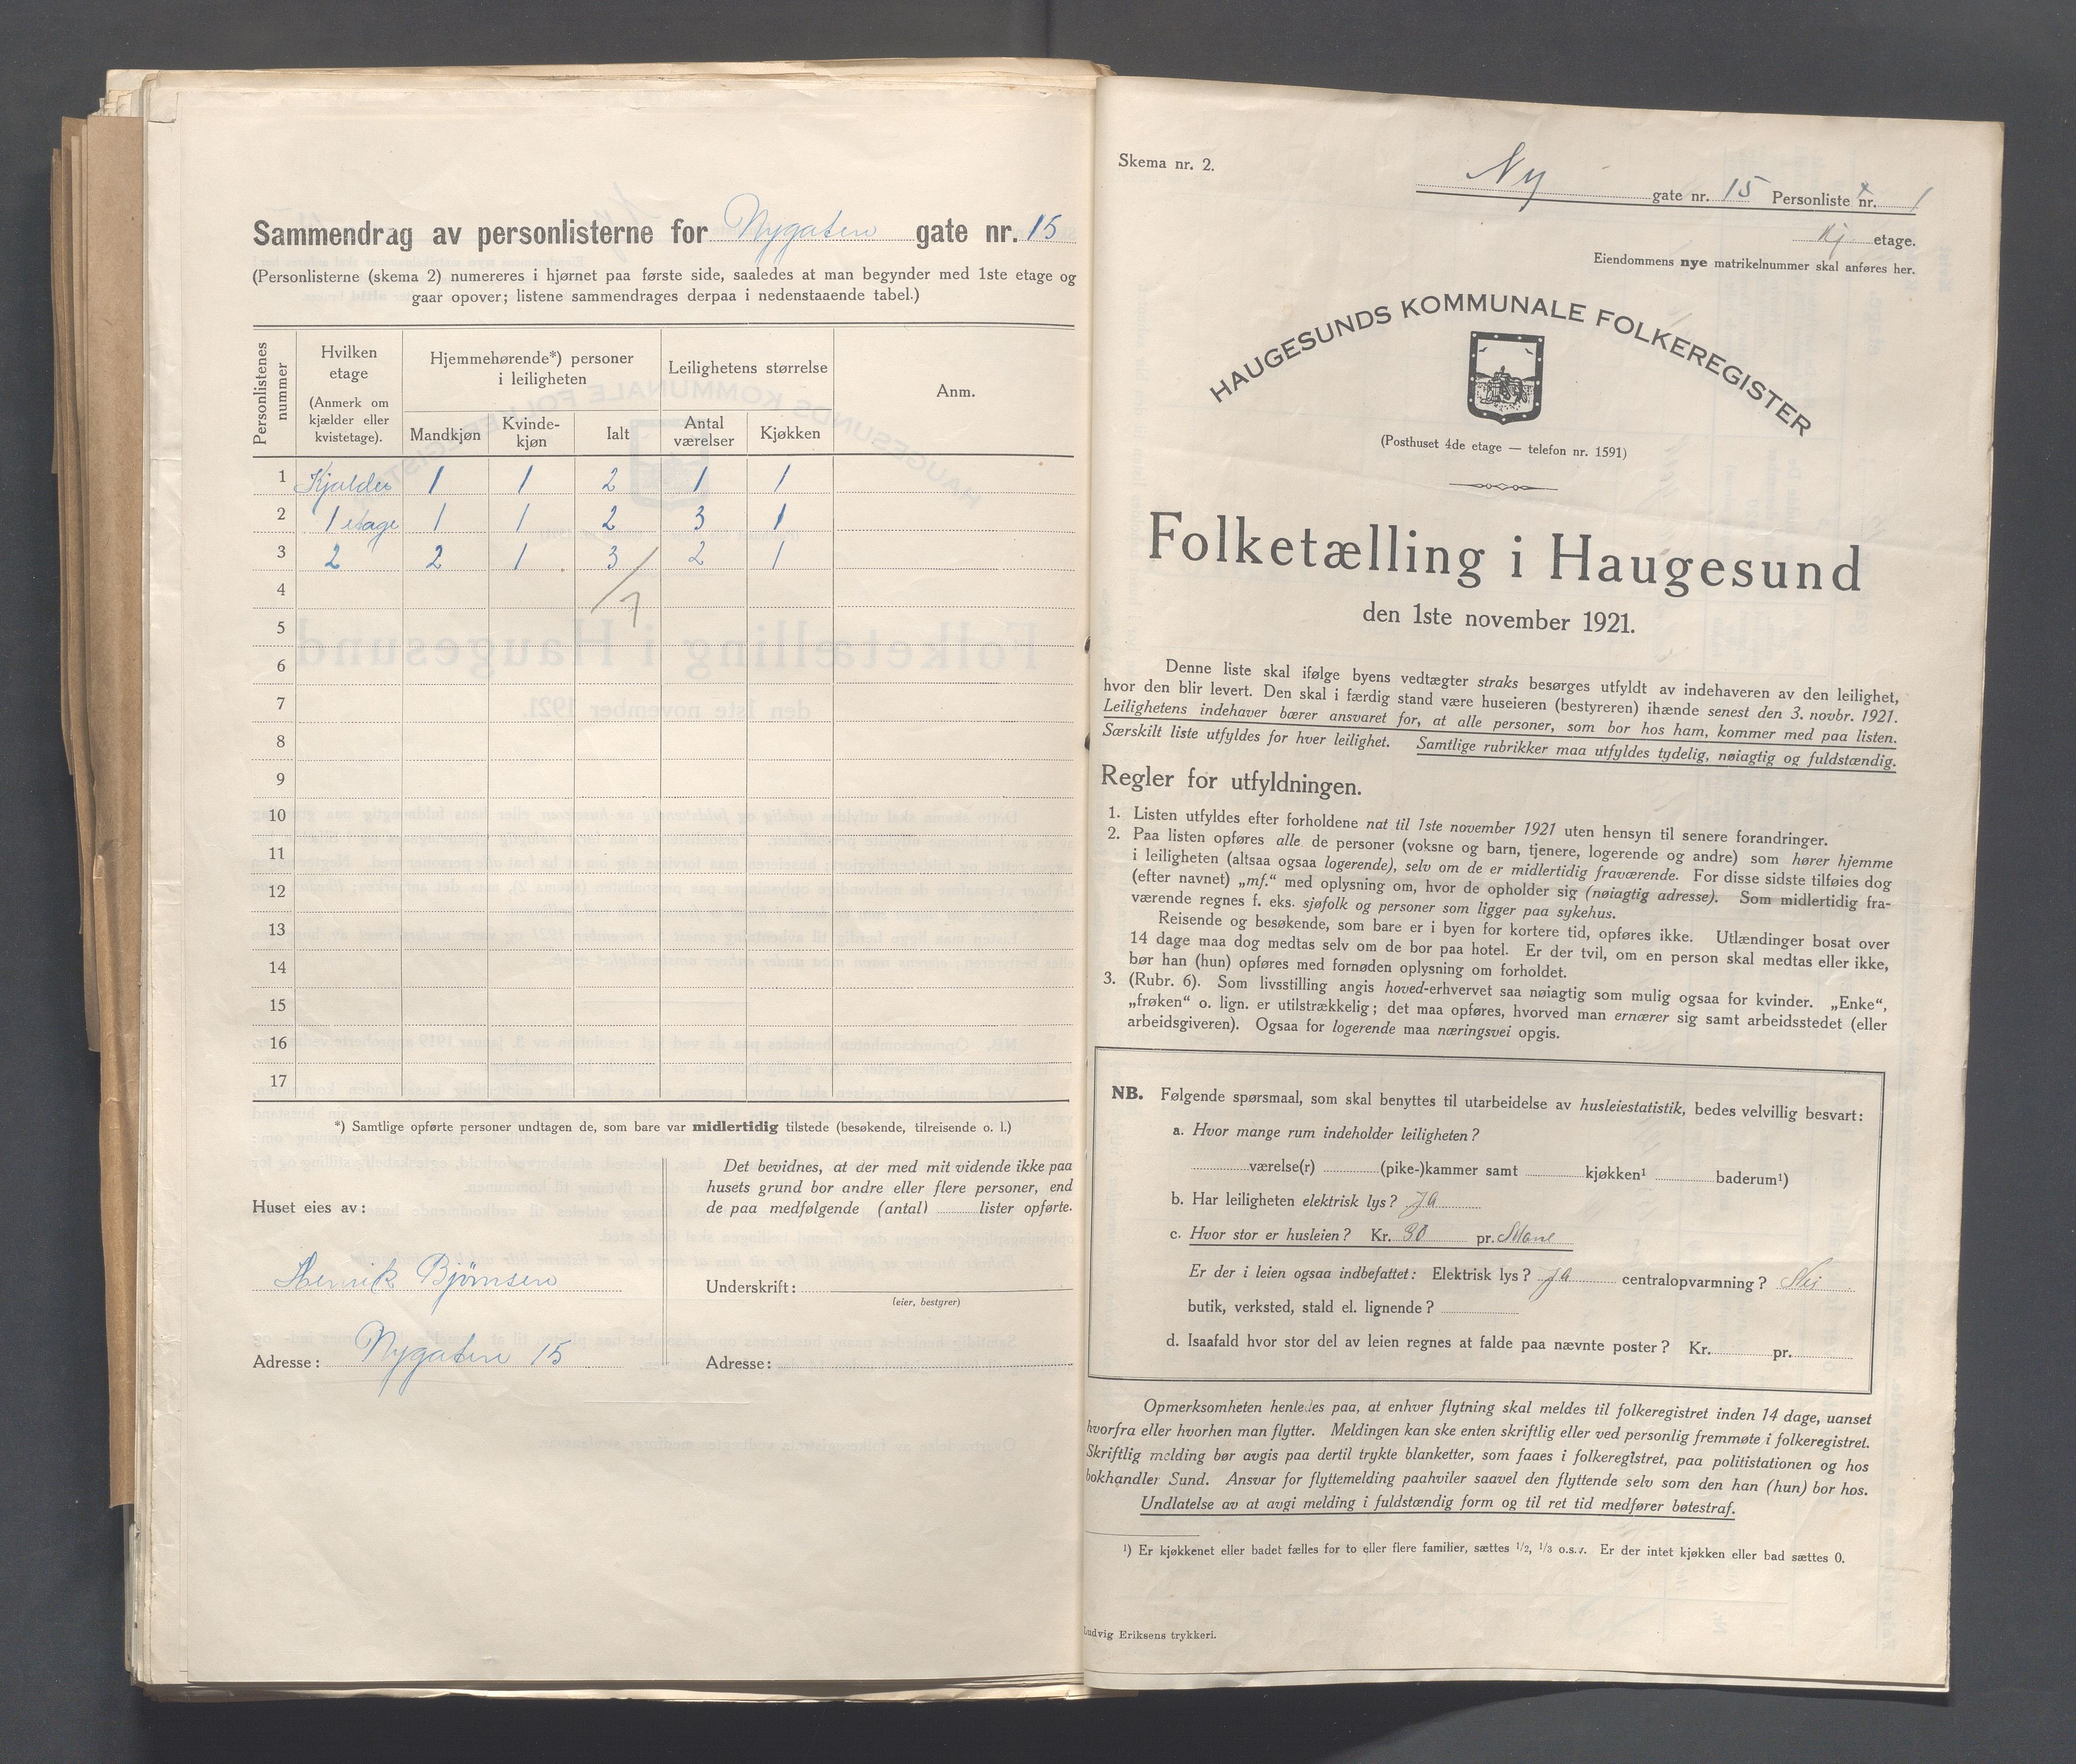 Sammendrag av personlisterne for Nygaten gate nr. 15
(Personlisterne (skema 2) numereres i hjørnet paa første side, saaledes at man begynder med 1ste etage og
gaar opover; listene sammendrages derpaa i nedenstaaende tabel.)
Personlistenes nummer
Hvilken etage (Anmerk om kjælder eller kvistetage).
Hjemmehørende*) personer i leiligheten
Leilighetens størrelse
Anm.
Mandkjøn Kvinde-kjøn Ialt Antal værelser Kjøkken
1 Kjælder 1 1 2 1 1
2 1 etage 1 1 2 3 1
3 2 2 1 3 2 1
4 7
5
6
7
8
9
10
11
12
13
14
15
16
17
*) Samtlige opførte personer undtagen de, som bare var midlertidig tilstede (besøkende, tilreisende o. l.)
Huset eies av:
Henrik Bjørnsen
Adresse: Nygaten 15
Det bevidnes, at der med mit vidende ikke paa
husets grund bor andre eller flere personer, end
de paa medfølgende (antal) lister opførte.
Underskrift:
(eier, bestyrer)
Adresse:
Skema nr. 2.
Ny gate nr. 15 Personliste nr. 1
Kj etage.
Eiendommens nye matrikelnummer skal anføres her.
HAUGESUNDS KOMMUNALE FOLKEREGISTER
(Posthuset 4de etage — telefon nr. 1591)
Folketælling i Haugesund
den 1ste november 1921.
Denne liste skal ifølge byens vedtægter straks besørges utfyldt av indehaveren av den leilighet,
hvor den blir levert. Den skal i færdig stand være huseieren (bestyreren) ihænde senest den 3. novbr. 1921.
Leilighetens indehaver bærer ansvaret for, at alle personer, som bor hos ham, kommer med paa listen.
Særskilt liste utfyldes for hver leilighet. Samtlige rubrikker maa utfyldes tydelig, nøiagtig og fuldstændig.
Regler for utfyldningen.
1. Listen utfyldes efter forholdene nat til 1ste november 1921 uten hensyn til senere forandringer.
2. Paa listen opføres alle de personer (voksne og barn, tjenere, logerende og andre) som hører hjemme
i leiligheten (altsaa ogsaa logerende), selv om de er midlertidig fraværende. For disse sidste tilføies dog
(efter navnet) „mf.“ med oplysning om, hvor de opholder sig (nøiagtig adresse). Som midlertidig fra-
værende regnes f. eks. sjøfolk og personer som ligger paa sykehus.
Reisende og besøkende, som bare er i byen for kortere tid, opføres ikke. Utlændinger bosat over
14 dage maa dog medtas selv om de bor paa hotel. Er der tvil, om en person skal medtas eller ikke,
bør han (hun) opføres med fornøden oplysning om forholdet.
3. (Rubr. 6). Som livsstilling angis hoved-erhvervet saa nøiagtig som mulig ogsaa for kvinder. „Enke“,
„frøken“ o. lign. er utilstrækkelig; det maa opføres, hvorved man ernærer sig samt arbeidsstedet (eller
arbeidsgiveren). Ogsaa for logerende maa næringsvei opgis.
NB. Følgende spørsmaal, som skal benyttes til utarbeidelse av husleiestatistik, bedes velvillig besvart:
a. Hvor mange rum indeholder leiligheten?
værelse(r) (pike-)kammer samt kjøkken¹ baderum¹)
b. Har leiligheten elektrisk lys? Ja
c. Hvor stor er husleien? Kr. 30 pr. Mane
Er der i leien ogsaa indbefattet: Elektrisk lys? Ja centralopvarmning? Nei
butik, verksted, stald el. lignende?
d. Isaafald hvor stor del av leien regnes at falde paa nævnte poster? Kr. pr.
Opmerksomheten henledes paa, at enhver flytning skal meldes til folkeregistret inden 14 dage, uanset
hvorfra eller hvorhen man flytter. Meldingen kan ske enten skriftlig eller ved personlig fremmøte i folkeregistret.
Skriftlig melding bør avgis paa dertil trykte blanketter, som faaes i folkeregistret, paa politistationen og hos
bokhandler Sund. Ansvar for flyttemelding paahviler saavel den flyttende selv som den han (hun) bor hos.
Undlatelse av at avgi melding i fuldstændig form og til ret tid medfører bøtestraf.
¹) Er kjøkkenet eller badet fælles for to eller flere familier, sættes 1/2, 1/3 o.s.v. Er der intet kjøkken eller bad sættes 0.
Ludvig Eriksens trykkeri.